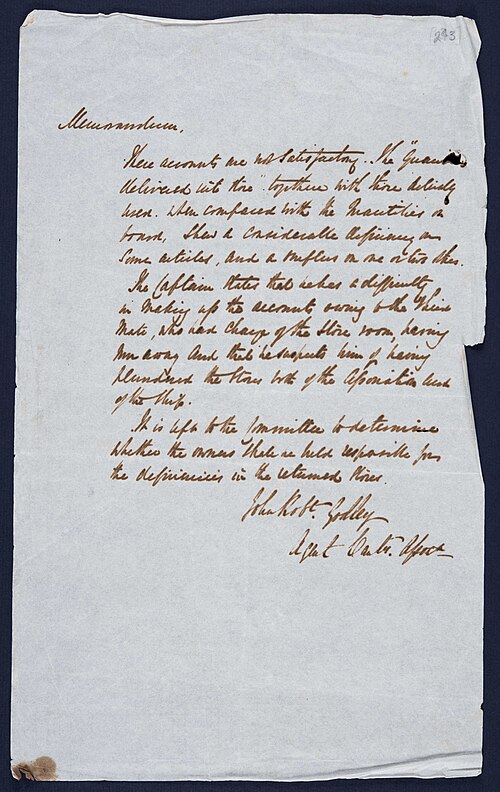 293
Memorandum.
These accounts are not Satisfactory. The "Quantities
delivered into Store" together with those actually
used. when compared with the Quantities on
board, Shew a considerable deficiency on
Some articles, and a Surplus on one or two others.
The Captain States that he has a difficulty
in Making up the accounts owing to the Third
Mate, who had charge of the Store room, having
run away and that he suspects him of having
plundered the Stores both of the Association and
of the Ship.
It is up to the Committee to determine
whether the owners Shall be held responsible for
the deficiencies in the returned Stores.
John Robt. Godley
Agent Cant. Assoct